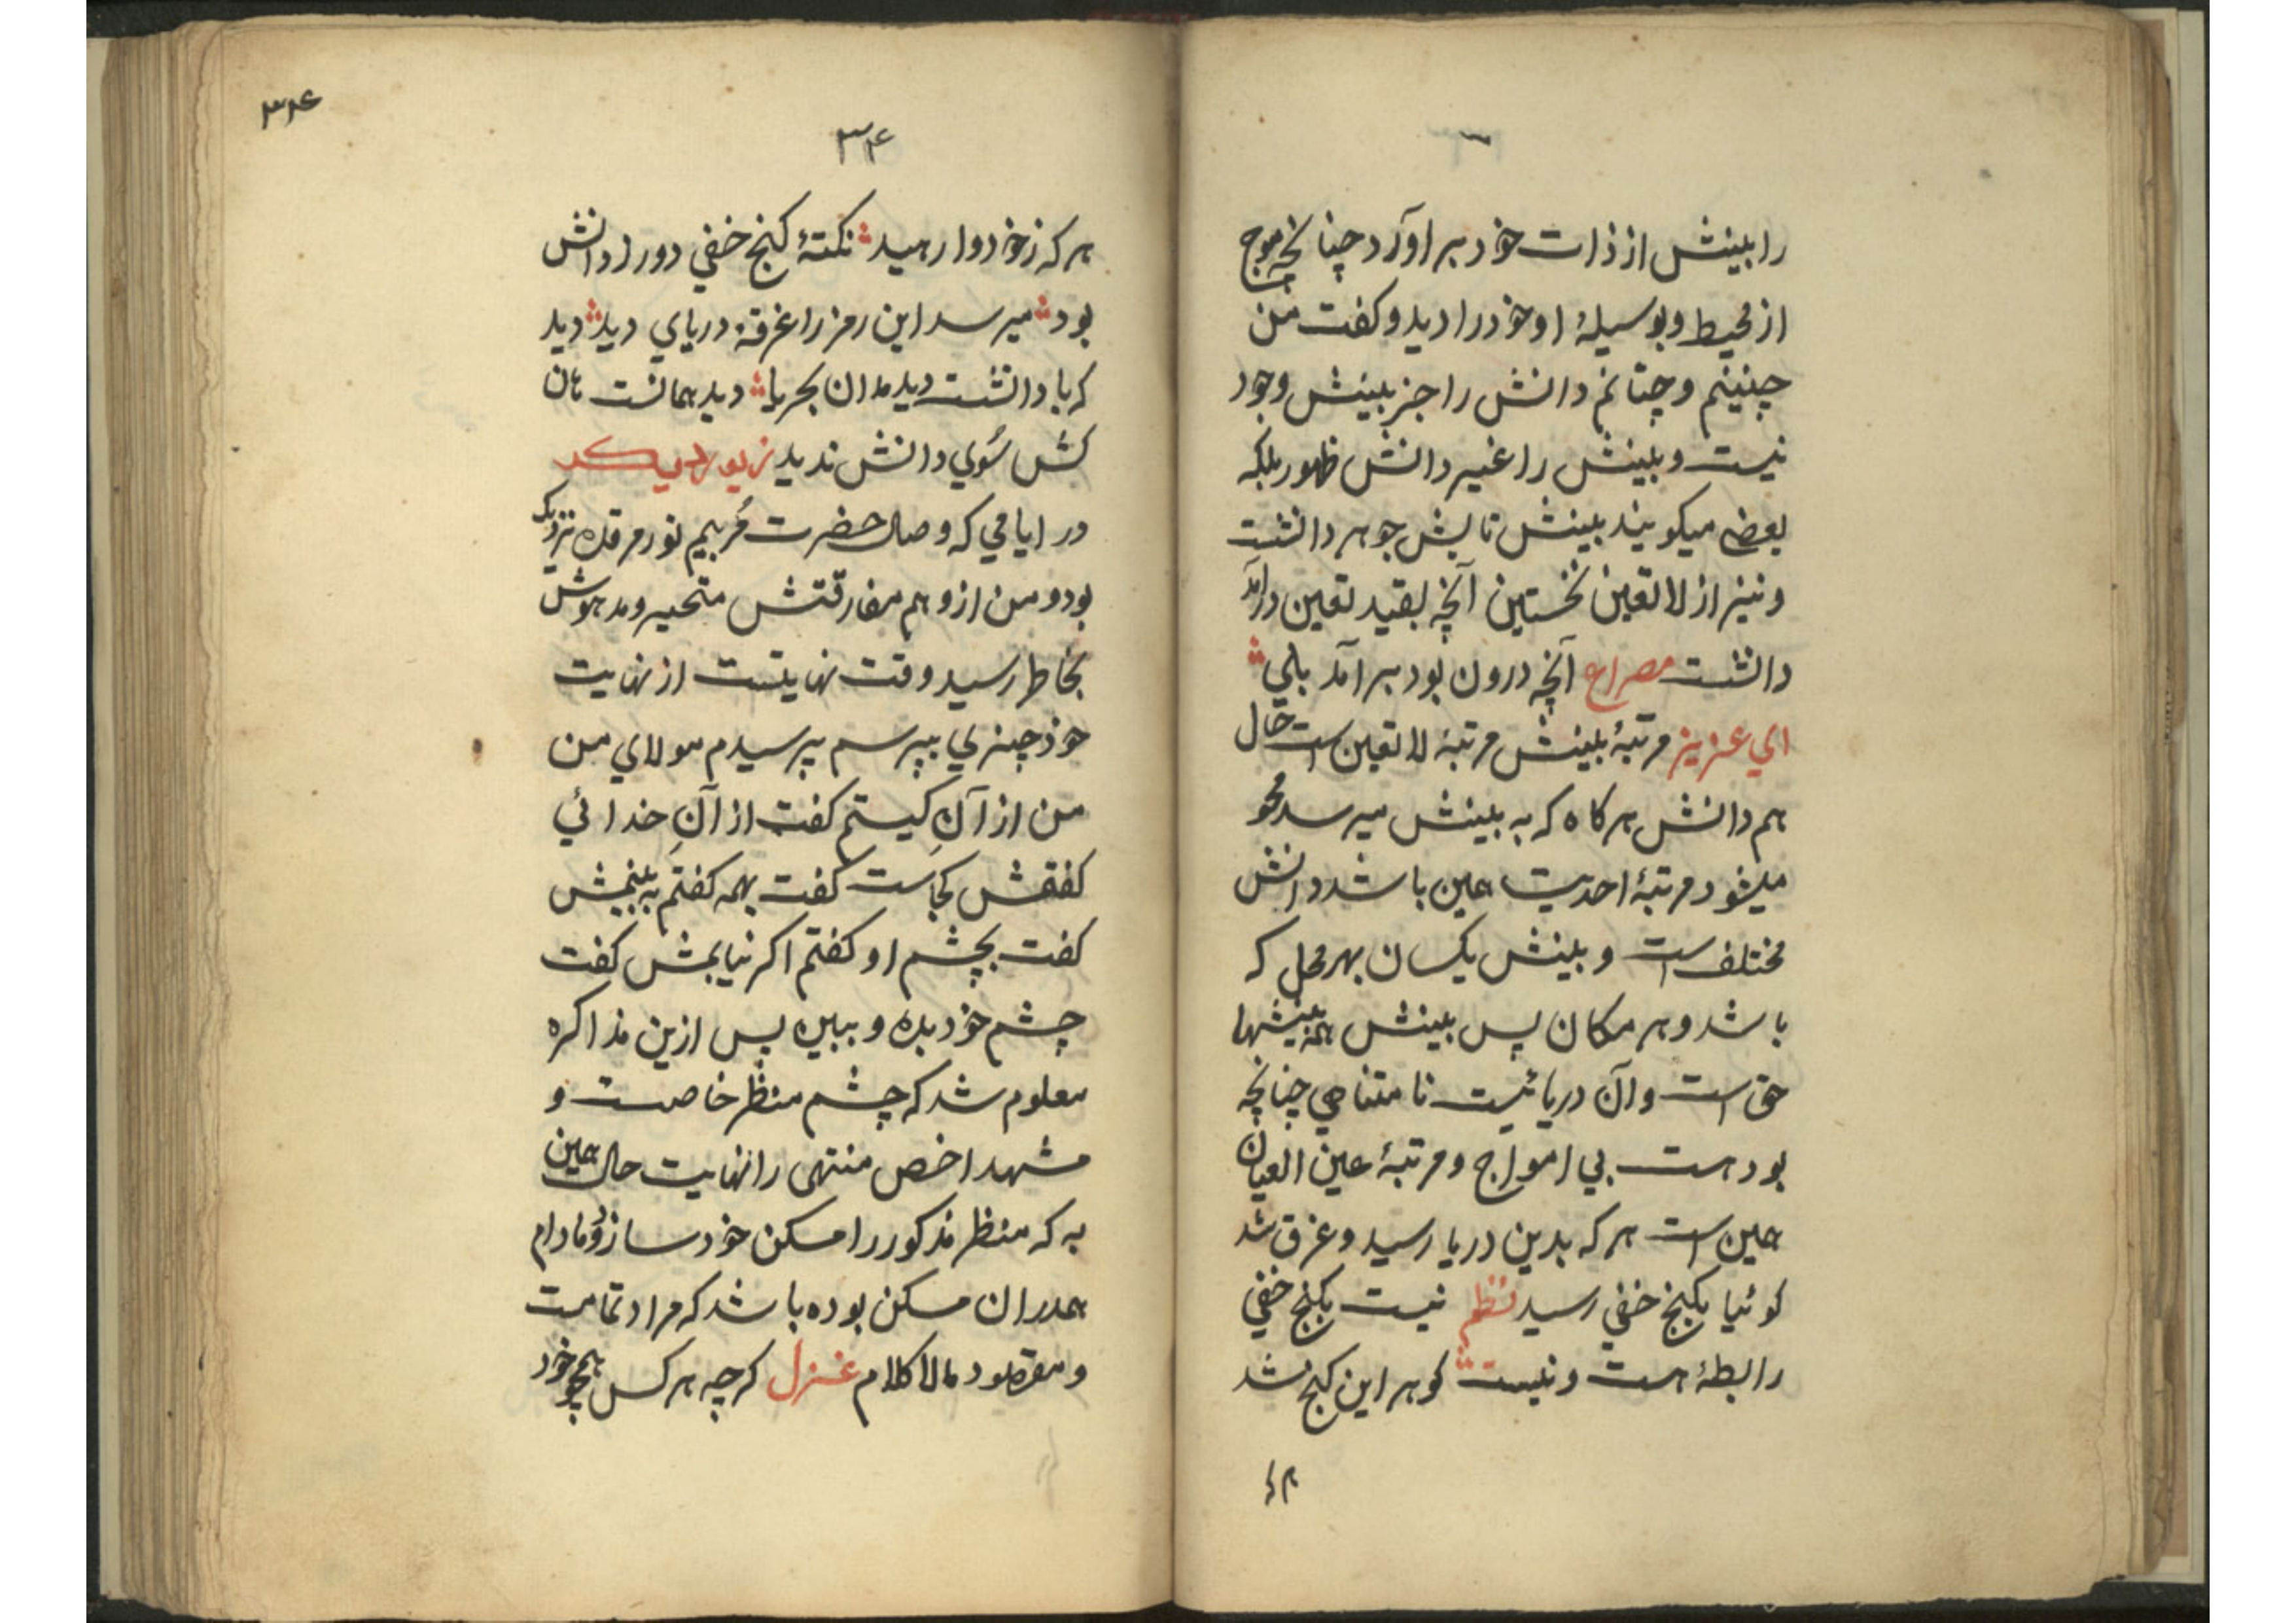 را بینش از ذات خود بر اورد چنانچه موج
از محیط و بوسیلهٔ او خود را دید و کفت من
چنینم و چنانم دانش را جز بینش وجود
نیست و بینش را غیر دانش ظهور بلکه
بعضی میکویند بینش تابش جوهر دانشت
و نیز از لا تعین نخستین آنچه بقید تعین درآمد
دانشت مصراع آنچه درون بود بر آمد بلی
ای عزیز مرتبهٔ بینش مرتبهٔ لا تعین است حال
هم دانش هر کاه که به بینش میرسد محو
میشود مرتبهٔ احدیت عین باشد دانش
مختلف است و بینش یکسان بهر محل که
باشد و هر مکان پس بینش همه بینشها
حق است و آن دریائیست نا متناهی چنانچه
بود هست بی امواج و مرتبهٔ عین العیان
عین است هر که بدین دریا رسید و غرق شد
کوئیا بکنج خفی رسید نظم نیست بکنج خفی
رابطهٔ هست و نیست کوهر این کنج شد
۳۴
۳۴
هر که ز خود وا رهید نکتهٔ کنج خفی دور از دانش
بود میرسد این رمز را غرقهٔ دریای دید دید
که با دانشت دید مدان بحریا دید همانست هان
کش سوی دانش ندید زیور دیکر
در ایامی که وصال حضرت مربیم نور مرقده نزدیک
بود و من از وهم مفارقتش متحیر و مدهوش
بخاطر رسید وقت نهایتست از نهایت
خود چیزی بپرسم پرسیدم مولای من
من از آنِ کیستم کفت از آنِ خدائی
کفتمش کجاست کفت بهمه کفتم به بینمش
کفت بچشم او کفتم اکر نیابمش کفت
چشم خود بده و ببین پس ازین مذاکره
معلوم شد که چشم منظر خاصست و
مشهد اخص منتهی را نهایت حال عین
به که منظر مذکور را مسکن خود سازد و مادام
همدران مسکن بوده باشد که مراد تمامست
و مقصود مالا کلام غزل کرچه هر کس همچو خود